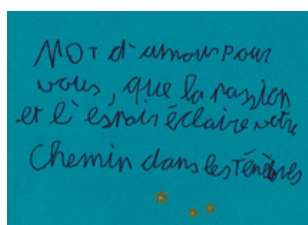 MOT d'amour pour
vous, que la passion
et l'espoir éclaire votre
Chemin dans les Ténèbres